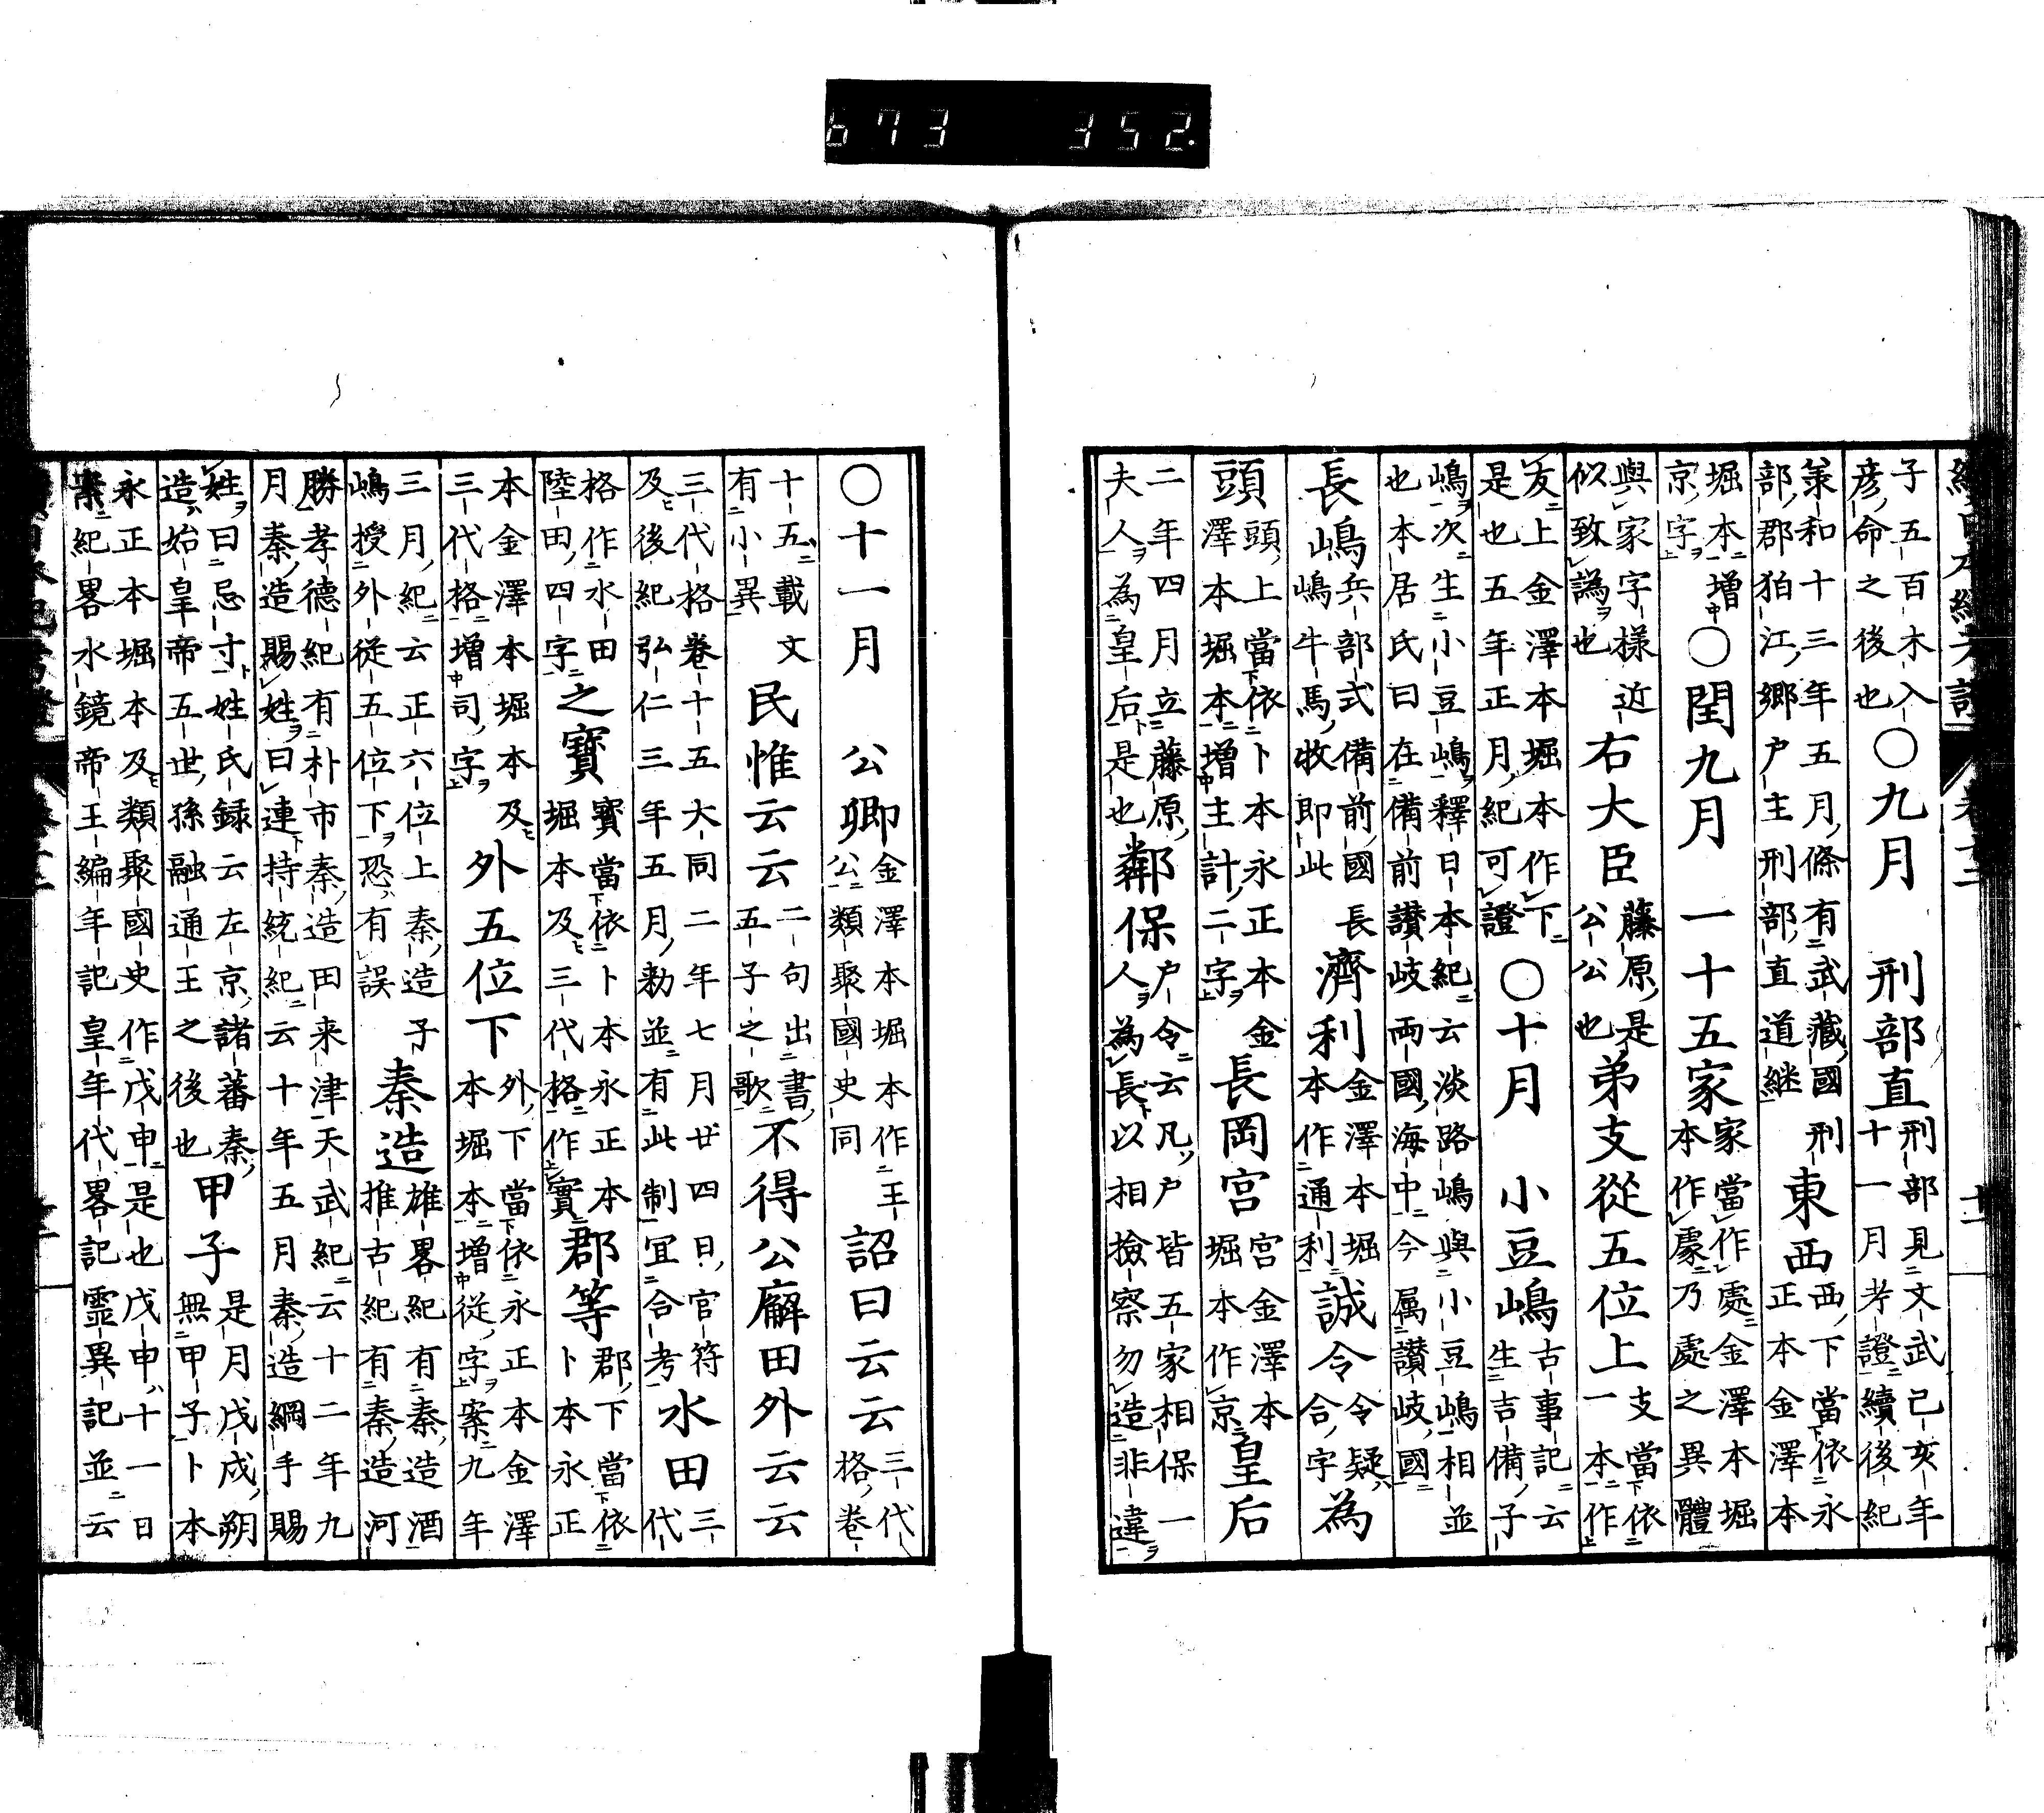 子五百木入
彦命之後也
○九月　刑部直
刑部見文武己亥年
十一月考證續後紀
羕和十三年五月條有武藏國刑
部郡狛江郷戸主刑部直道継
東西
西下當依永
正本金澤本
堀本增
京字
○閏九月　一十五家
家當作處金澤本堀
本作䖏乃處之異體
與家字様近
似致譌也
右大臣
藤原是
公公也
弟支從五位上
支當依
一本作
友上金澤本堀本作下
是也五年正月紀可證
○十月　小豆嶋
古事記云
生吉備子
嶋次生小豆嶋釋日本紀云淡路嶋與小豆嶋相並
也本居氏曰在備前讃岐両國海中今属讃岐國
長嶋
兵部式備前國長
嶋牛馬牧即此
濟利
金澤本堀
本作通利
誠令
令疑
合字
為
頭
頭上當依卜本永正本金
澤本堀本增主計二字
長岡宮
宮金澤本
堀本作京
皇后
二年四月立藤原
夫人為皇后是也
鄰保
戸令云凡戸皆五家相保一
人為長以相撿察勿造非違
○十一月　公卿
金澤本堀本作王
公類聚國史同
詔曰云云
三代
格卷
十五載文
有小異
民惟云云
二句出書
五子之歌
不得公廨田外云云
三代格卷十五大同二年七月廿四日官符
及後紀弘仁三年五月勅並有此制冝合考
水田
三
代
格作水田
陸田四字
之寶
寳當依卜本永正本
堀本及三代格作實
郡等
郡下當依
卜本永正
本金澤本堀本及
三代格增司字
外五位下
外下當依永正本金澤
本堀本增從字案九年
三月紀云正六位上秦造子
嶋授外從五位下恐有誤
秦造
雄畧紀有秦造酒
推古紀有秦造河
勝孝德紀有朴市秦造田来津天武紀云十二年九
月秦造賜姓曰連持統紀云十年五月秦造綱手賜
姓曰忌寸姓氏録云左京諸蕃秦
造始皇帝五世孫融通王之後也
甲子
是月戊戌朔
無甲子卜本
永正本堀本及類聚國史作戊申是也戊申十一日
案紀畧水鏡帝王編年記皇年代畧記霊異記並云
673 352.